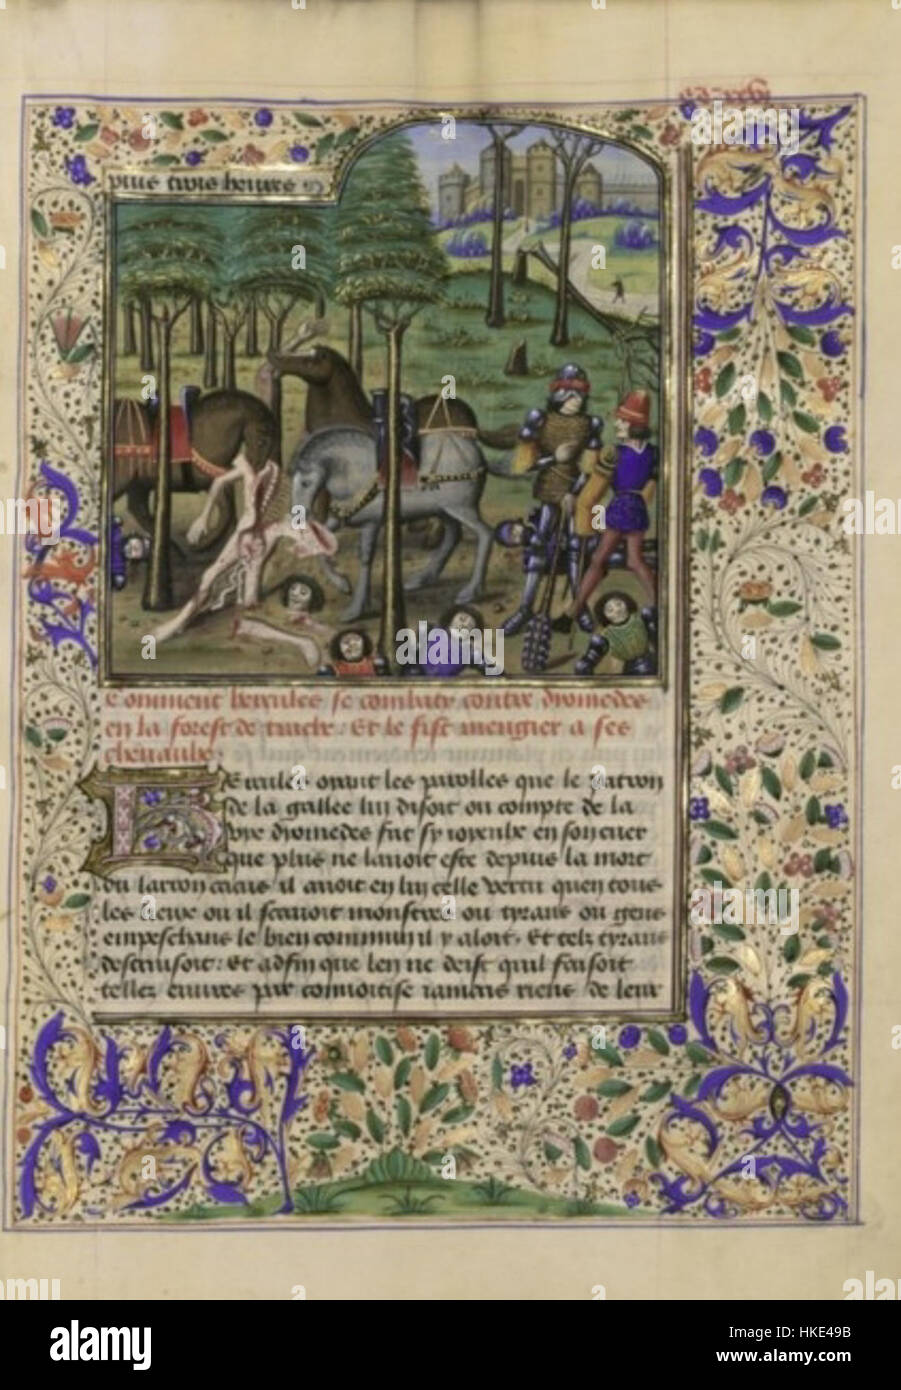 plus trois heures
Comment hercules se combaty contre dyomedes
en la forest de trache : Et le fist mengier a ses
chevaulx
Hercules oyant les parolles que le patron
de la gallee lui disoit ou compte de la
vye dyomedes fut sy joyeulx en son cuer
que plus ne lavoit este depuis la mort
du larron cacus il avoit en lui telle vertu quen tous
les lieux ou il scavoit monstres ou tyrans ou gens
empeschans le bien commun il y aloit, Et telz tyrans
destruisoit : Et adfin que len ne deist quil faisoit
tellez euvres par convoitise jamais riens de leur
alamy stock photo
HKE49B
www.alamy.com